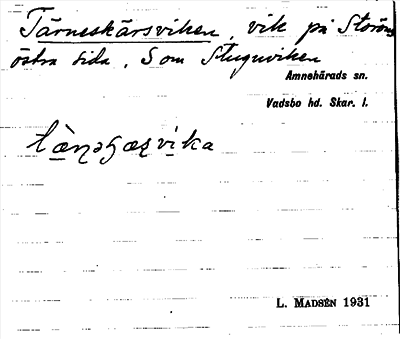 Tärneskärsviken, vik på Storöns
östra sida, S om Stuguviken
Amnehärads sn.
Vadsbo hd. Skar. l.
L. MADSÉN 1931